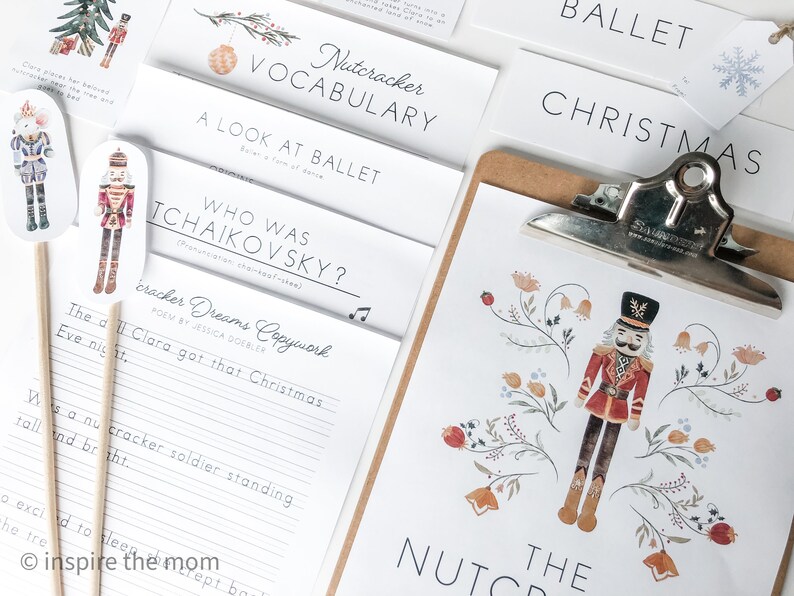 turns into a
takes Clara to an
enchanted land of snow.
Clara places her beloved
nutcracker near the tree and
goes to bed
Nutcracker
VOCABULARY
A LOOK AT BALLET
Ballet: a form of dance
ORIGINS
WHO WAS
TCHAIKOVSKY?
(Pronunciation: chai-koof-skee)
Dreams Copywork
POEM BY JESSICA DOEBLER
The doll Clara got that Christmas
Eve night,
Was a nutcracker soldier standing
tall and bright.
excited to sleep she crept back
the tree
BALLET
CHRISTMAS
To:
From:
SAUNDERS
www.saunders-usa.com
THE
© inspire the mom